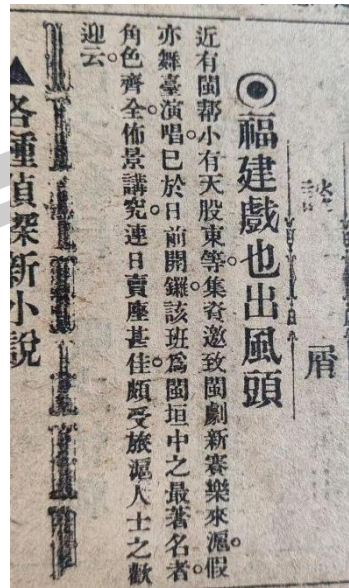 屑
◉福建戲也出風頭
近有閩帮小有天股東等。集資邀致閩劇新賽樂來滬。假
亦舞臺演唱。已於日前開鑼。該班爲閩垣中之最著名者。
角色齊全。佈景講究。連日賣座甚佳。頗受旅滬人士之歡
迎云。
▲各種偵探新小說